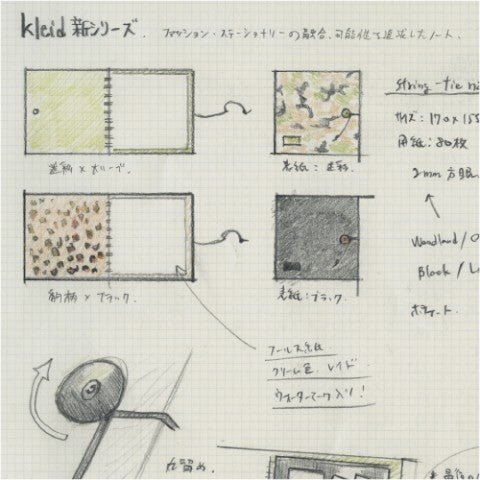 kleid 新シリーズ.
ファッション・ステーショナリーの融合、可能性を追求したノート.
string-tie
サイズ: 170×155
用紙: 80枚
2mm 方眼
迷彩×オリーブ.
表紙: 迷彩.
Woodland / O
Black / L
豹柄×ブラック.
表紙: ブラック.
フールス紙
クリーム色 レイド
ウォーターマーク入り!
丸留め.